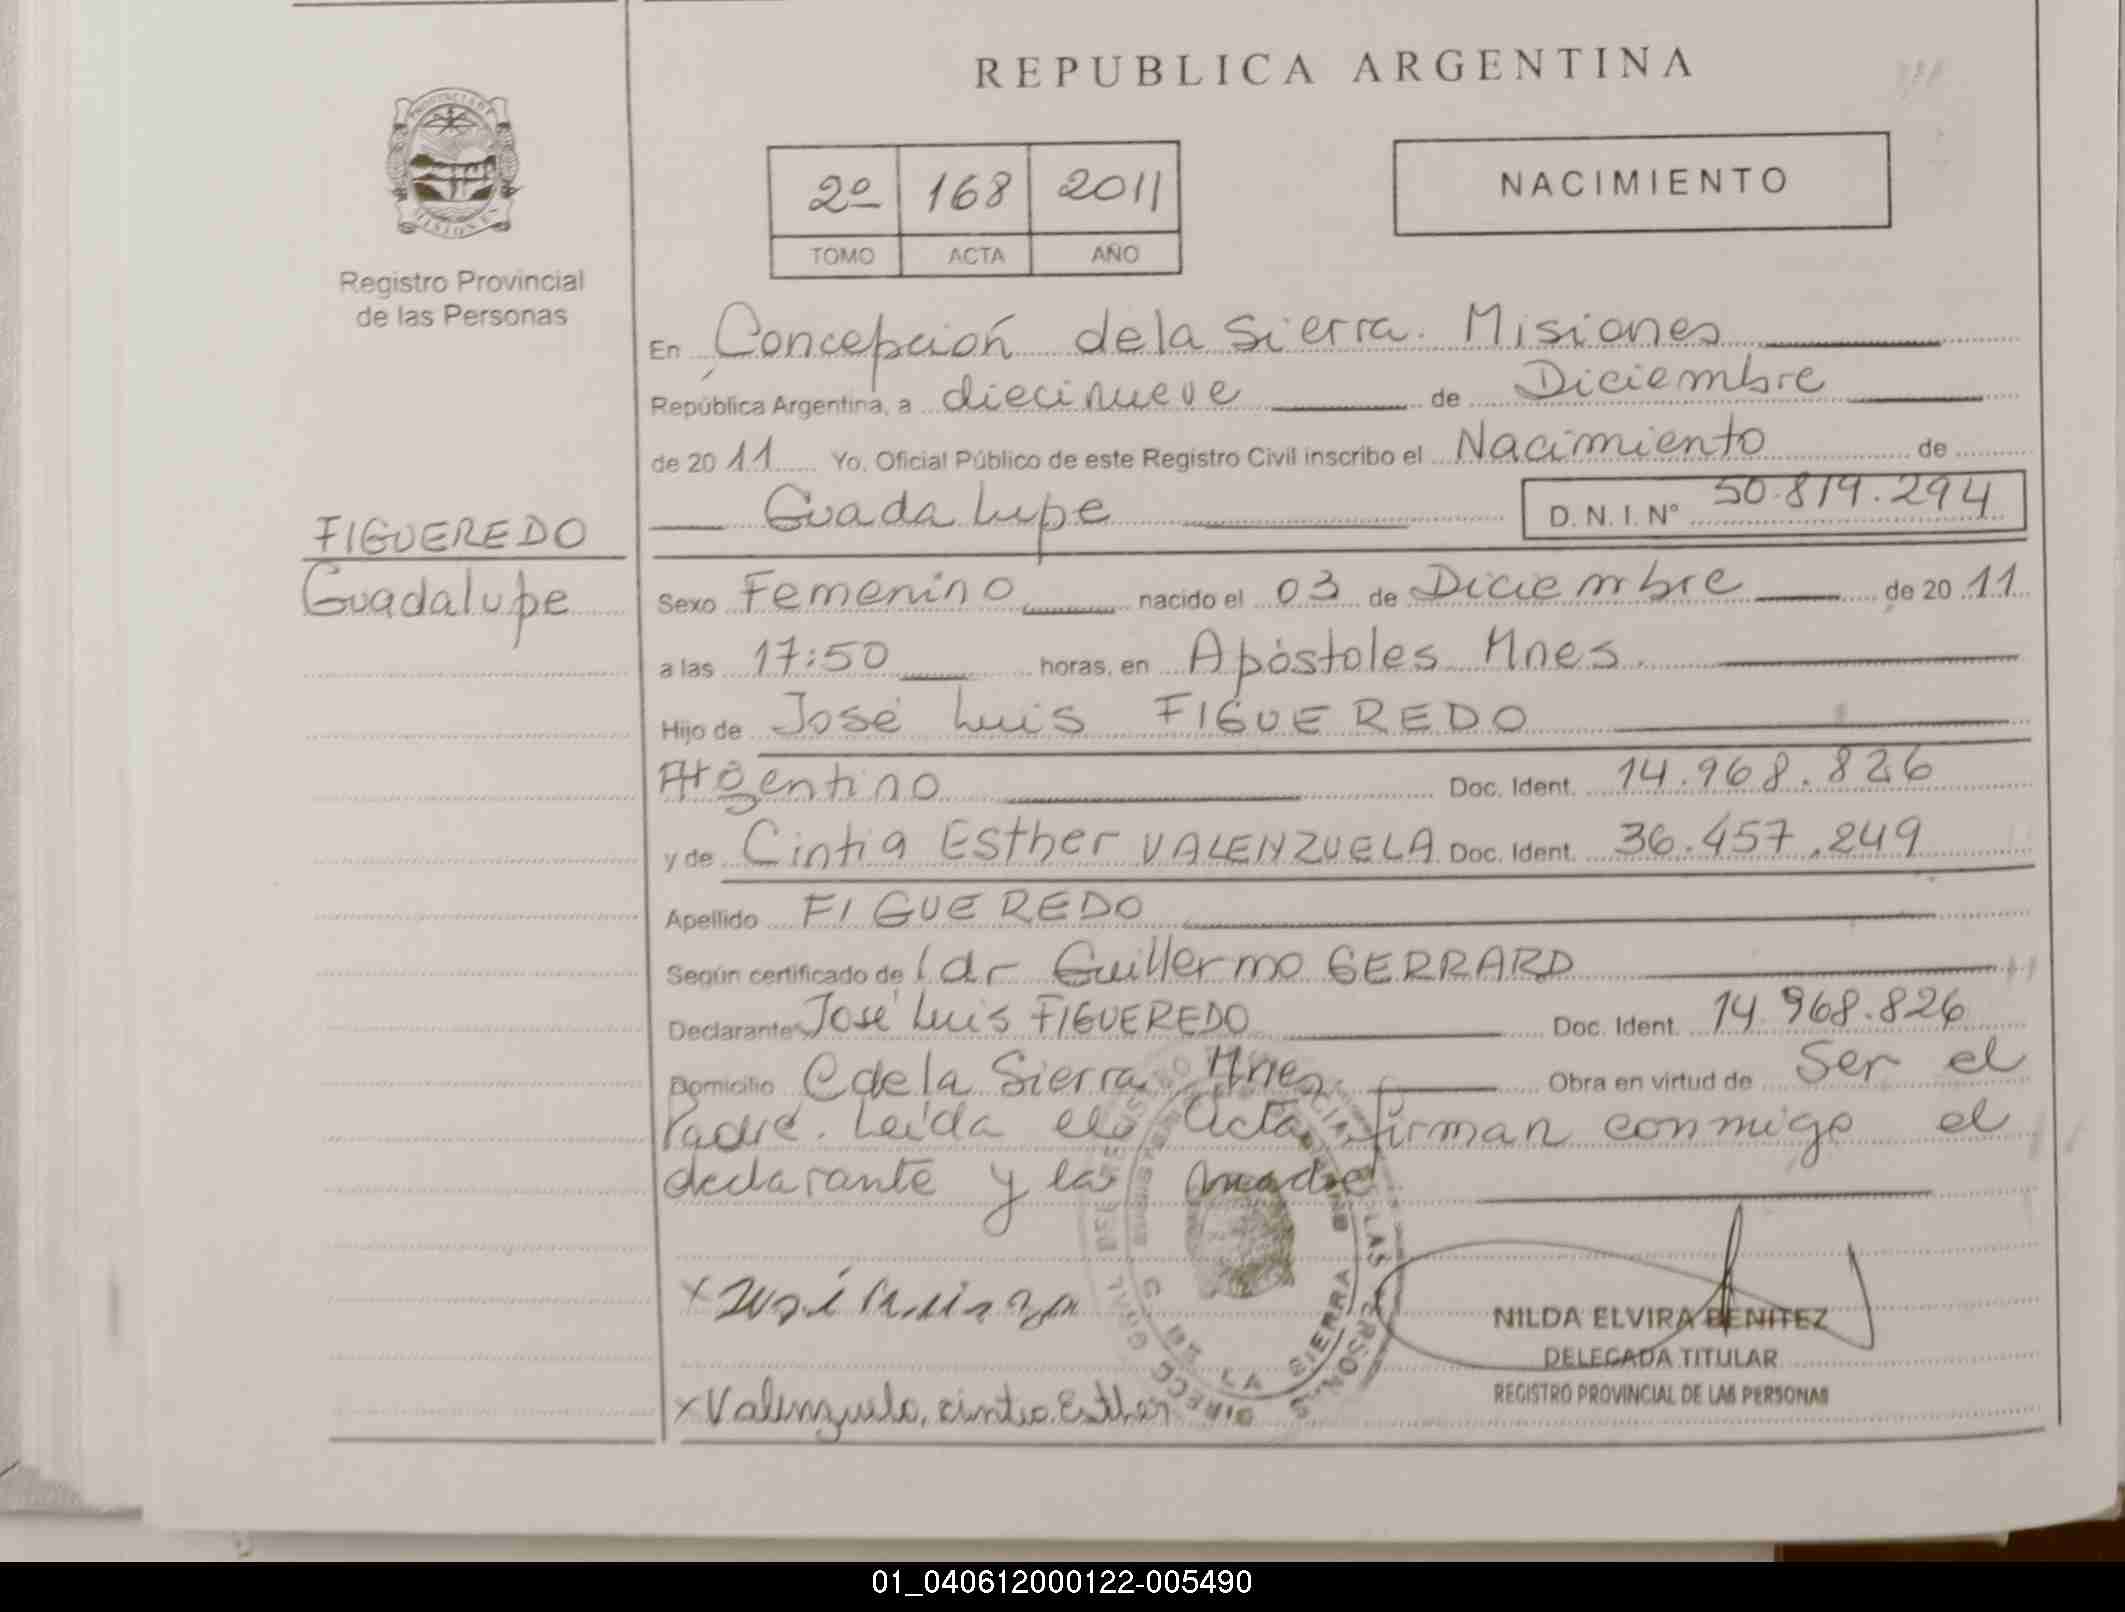 REPUBLICA ARGENTINA
PROVINCIA DE MISIONES
Registro Provincial
de las Personas
2º 168 2011
TOMO ACTA AÑO
NACIMIENTO
En Concepción de la Sierra. Misiones
República Argentina, a diecinueve de Diciembre
de 2011 Yo, Oficial Público de este Registro Civil inscribo el Nacimiento de
Guadalupe D.N.I. Nº 50.819.294
FIGUEREDO
Guadalupe
Sexo Femenino nacido el 03 de Diciembre de 2011
a las 17:50 horas, en Apóstoles Mnes.
Hijo de José Luis FIGUEREDO
Argentino Doc. Ident. 14.968.826
y de Cintia Esther VALENZUELA Doc. Ident. 36.457.249
Apellido FIGUEREDO
Según certificado de l dr Guillermo GERRARD
Declarante José Luis FIGUEREDO Doc. Ident. 14.968.826
Domicilio C de la Sierra Mnes Obra en virtud de Ser el
Padre. Leída el Acta firman conmigo el
declarante y la madre
x José Luis
x Valenzuela, cintia Esther
C. DE LA SIERRA
NILDA ELVIRA BENITEZ
DELEGADA TITULAR
REGISTRO PROVINCIAL DE LAS PERSONAS
01_040612000122-005490